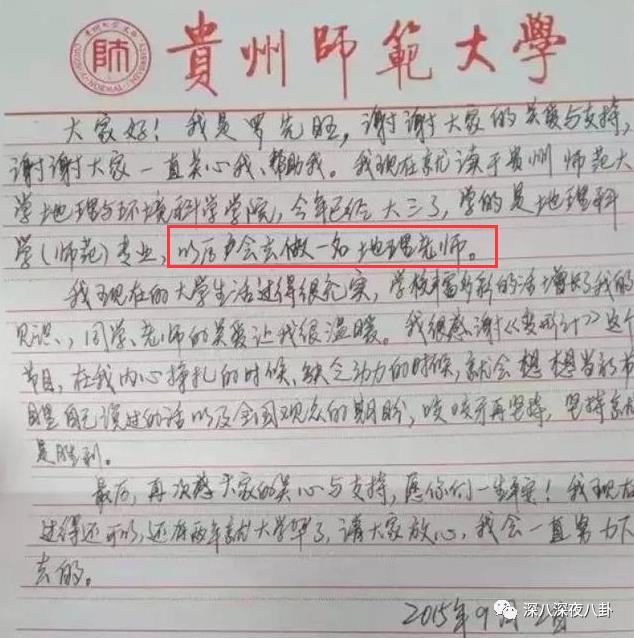 贵州师范大学
GUIZHOU NORMAL UNIVERSITY
師
貴州師範大學
大家好！我是罗先旺，谢谢大家的关爱与支持，
谢谢大家一直关心我、帮助我。我现在就读于贵州师范大
学地理与环境科学学院，今年已经大三了，学的是地理科
学（师范）专业，以后会去做一名地理老师。
我现在的大学生活过得很充实，学校丰富多彩的活增长了我的
见识，同学、老师的关爱让我很温暖。我很感谢《变形计》这个
节目，在我内心挣扎的时候，缺乏动力的时候，就会想想当初节
目里自己说过的话以及全国观众的期盼，咬咬牙再坚持，坚持就
是胜利。
最后，再次感大家的关心与支持，愿你们一生平安！我现在
过得还可以，还有两年就大学毕了，请大家放心，我会一直努力下
去的。
2015年9月
深八深夜八卦